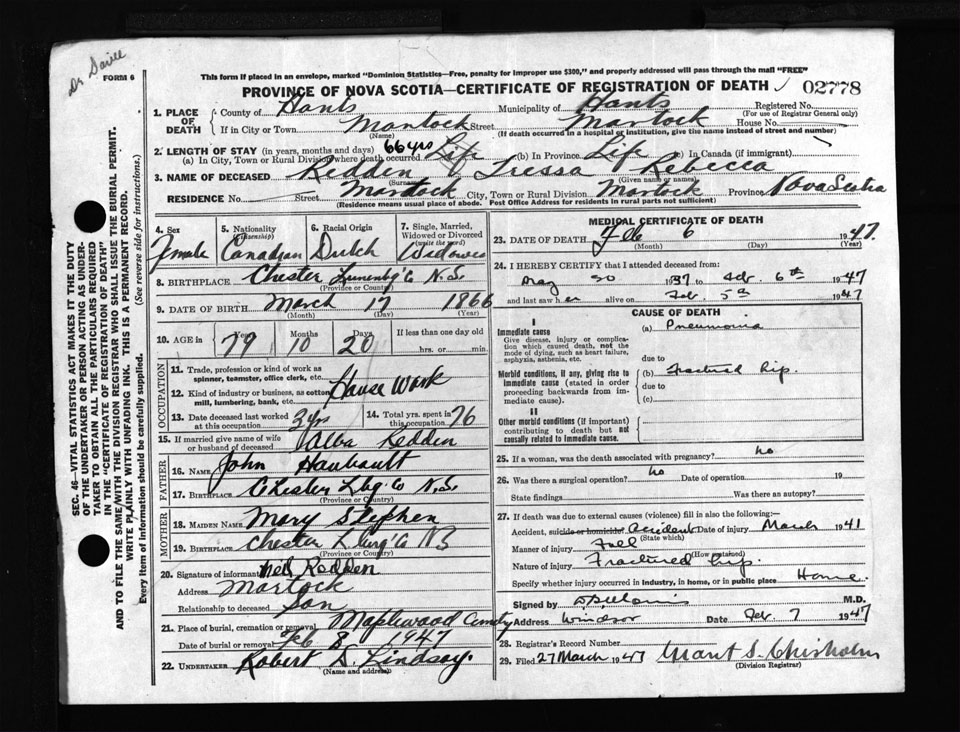 Dr Saville
FORM 6
This form if placed in an envelope, marked "Dominion Statistics—Free, penalty for improper use $300," and properly addressed will pass through the mail "FREE"
PROVINCE OF NOVA SCOTIA—CERTIFICATE OF REGISTRATION OF DEATH 02778
1. PLACE OF DEATH County of Hants Municipality of Hants Registered No. (For use of Registrar General only)
If in City or Town Martock (Name) Street Martock House No.
(If death occurred in a hospital or institution, give the name instead of street and number)
2. LENGTH OF STAY (in years, months and days) 66 yrs
(a) In City, Town or Rural Division where death occurred Life (b) In Province Life (c) In Canada (if immigrant)
3. NAME OF DECEASED Redden (Surname) Tressa Rebecca (Given name or names)
RESIDENCE No. Street Martock City, Town or Rural Division Martock Province Nova Scotia
(Residence means usual place of abode. Post Office Address for residents in rural parts not sufficient)
4. Sex Female
5. Nationality (Citizenship) Canadian
6. Racial Origin Dutch
7. Single, Married, Widowed or Divorced (write the word) Widowed
8. BIRTHPLACE Chester Lunenbg Co N.S. (Province or Country)
9. DATE OF BIRTH March (Month) 17 (Day) 1866 (Year)
10. AGE in Years 79 Months 10 Days 20 If less than one day old hrs. or min.
OCCUPATION
11. Trade, profession or kind of work as spinner, teamster, office clerk, etc.
12. Kind of industry or business, as cotton mill, lumbering, bank, etc. House Work
13. Date deceased last worked at this occupation 3 yrs
14. Total yrs. spent in this occupation 76
15. If married give name of wife or husband of deceased Alba Redden
FATHER
16. NAME John
17. BIRTHPLACE Chester Lbg Co N.S. (Province or Country)
MOTHER
18. MAIDEN NAME Mary Stephen
19. BIRTHPLACE Chester Lburg Co NS (Province or Country)
20. Signature of informant Ned Redden
Address Martock
Relationship to deceased Son
21. Place of burial, cremation or removal Maplewood Cemetry
Date of burial or removal Feb 8 1947
22. UNDERTAKER Robert S. Lindsay. (Name and address)
MEDICAL CERTIFICATE OF DEATH
23. DATE OF DEATH Feb (Month) 6 (Day) 1947. (Year)
24. I HEREBY CERTIFY that I attended deceased from
May 30 1937 to Feb. 6th 1947
and last saw her alive on Feb. 5th 1947
CAUSE OF DEATH
I
Immediate cause (a) Pneumonia
Give disease, injury or complication which caused death, not the mode of dying, such as heart failure, asphyxia, asthenia, etc.
due to
Morbid conditions, if any, giving rise to immediate cause (stated in order proceeding backwards from immediate cause). (b) Fractured hip.
due to
(c)
II
Other morbid conditions (if important) contributing to death but not causally related to immediate cause.
25. If a woman, was the death associated with pregnancy? no
26. Was there a surgical operation? no Date of operation 19
State findings Was there an autopsy?
27. If death was due to external causes (violence) fill in also the following:
Accident, suicide or homicide Accident (State which) Date of injury March 1941
Manner of injury Fall (How sustained)
Nature of injury Fractured hip.
Specify whether injury occurred in industry, in home, or in public place Home.
Signed by M.D.
Address Windsor Date Feb. 7 1947
28. Registrar's Record Number
29. Filed 27 March 1947 Grant S. Chisholm (Division Registrar)
SEC. 46—VITAL STATISTICS ACT MAKES IT THE DUTY
OF THE UNDERTAKER OR PERSON ACTING AS UNDERTAKER
TO OBTAIN ALL THE PARTICULARS REQUIRED
IN THE "CERTIFICATE OF REGISTRATION OF DEATH"
AND TO FILE THE SAME WITH THE DIVISION REGISTRAR WHO SHALL ISSUE THE BURIAL PERMIT.
WRITE PLAINLY WITH UNFADING INK. THIS IS A PERMANENT RECORD.
Every item of information should be carefully supplied. (See reverse side for instructions.)